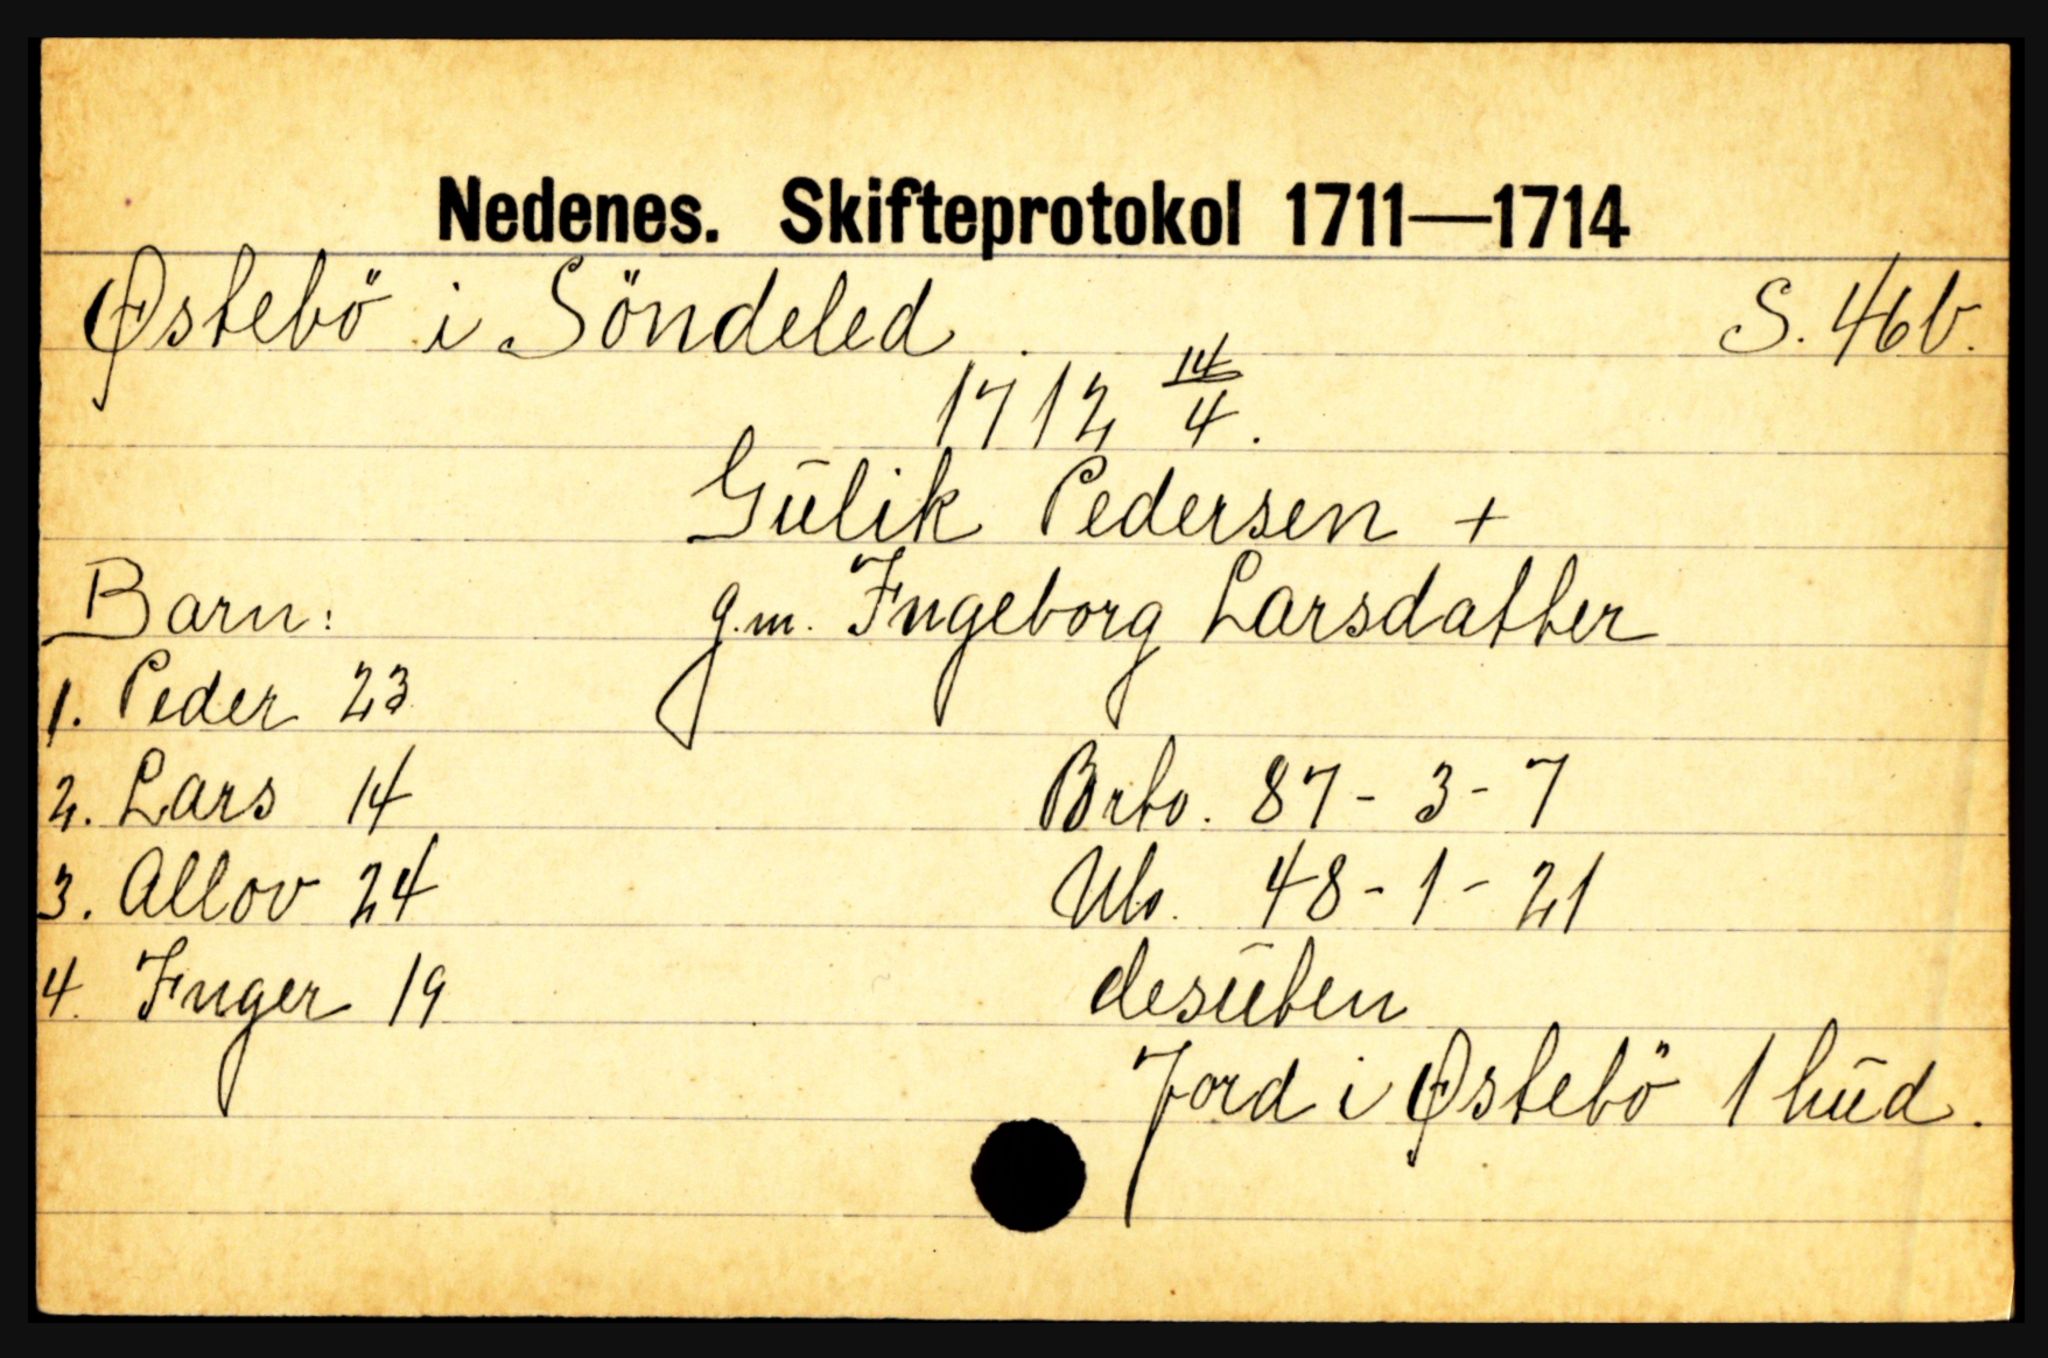 Nedenes. Skifteprotokol 1711—1714
Østebö i Söndeled S. 46b.
1712 14/4.
Gūlik Pedersen +
Barn: g.m. Ingeborg Larsdatter
1. Peder 23
2. Lars 14 Brto. 87 - 3 - 7
3. Allov 24 Nto. 48 - 1 - 21
4. Inger 19 desūten
Jord i Østebö 1 hūd.